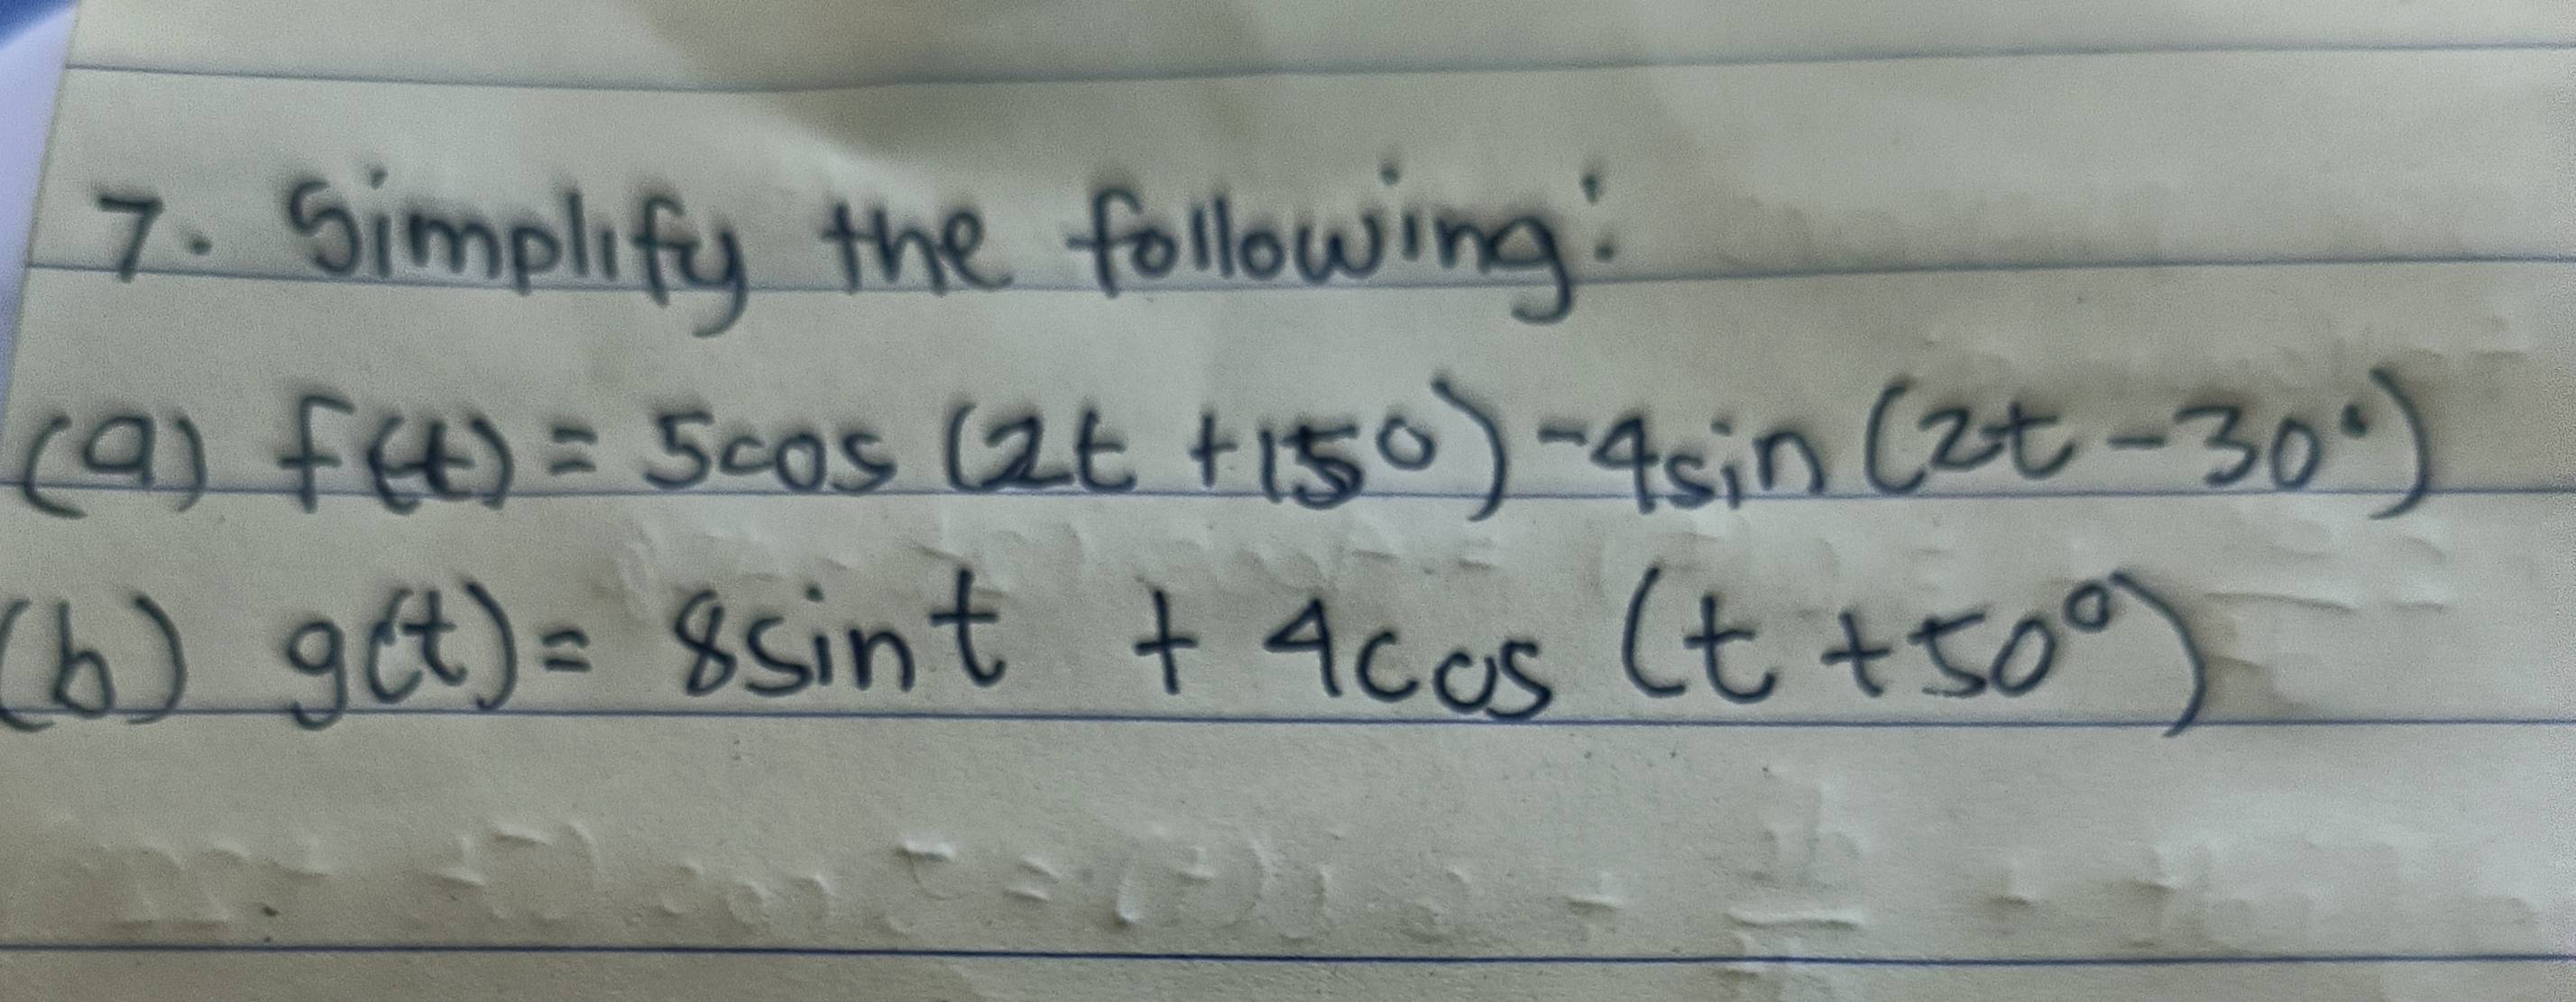 7. Simplify the following:
(a) f(t) = 5cos (2t +15°) -4sin (2t -30°)
(b) g(t) = 8sint + 4cos (t +50°)